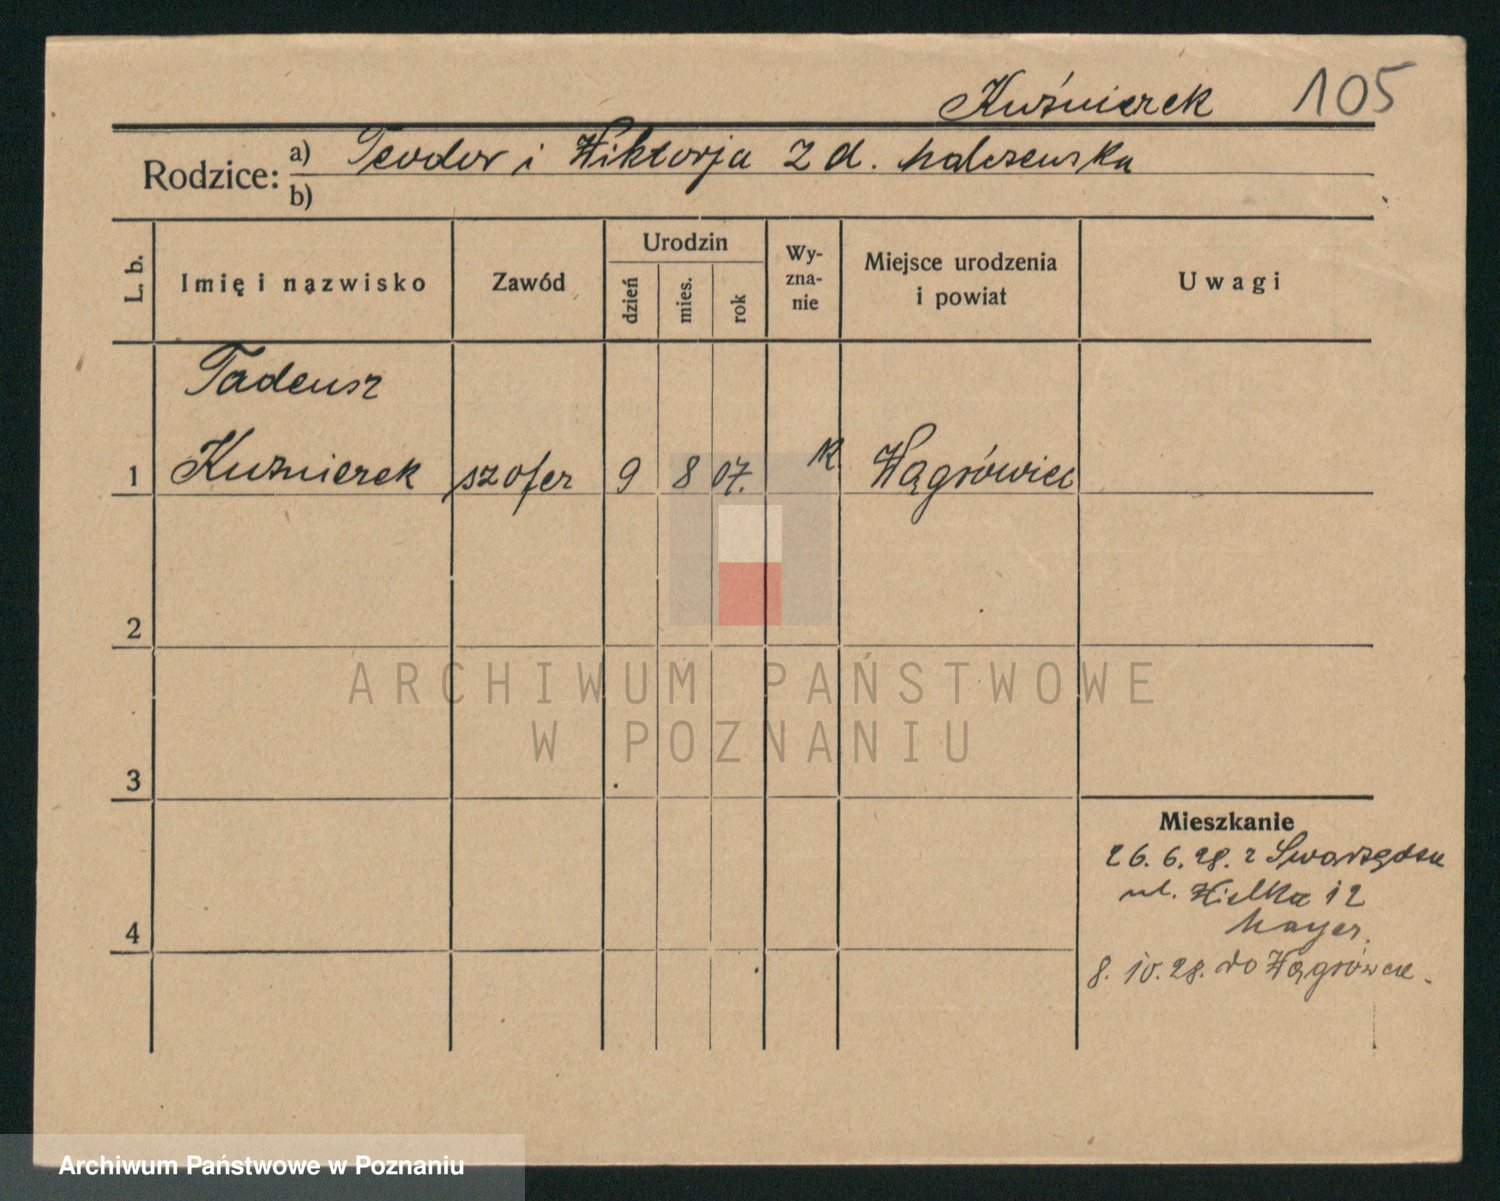 Kuźnierek 105
Rodzice: a) Teodor i Wiktorja z d. Malczewska
b)
L. b. Imię i nazwisko Zawód Urodzin dzień mies. rok Wy-zna-nie Miejsce urodzenia i powiat Uwagi
Tadeusz
1 Kuźnierek szofer 9 8 07. K Wągrówiec
2
ARCHIWUM PAŃSTWOWE
W POZNANIU
3
Mieszkanie
26. 6. 28. z Swarzędza
ul. Wielka 12
Mayer.
4
8. 10. 28. do Wągrówca.
Archiwum Państwowe w Poznaniu